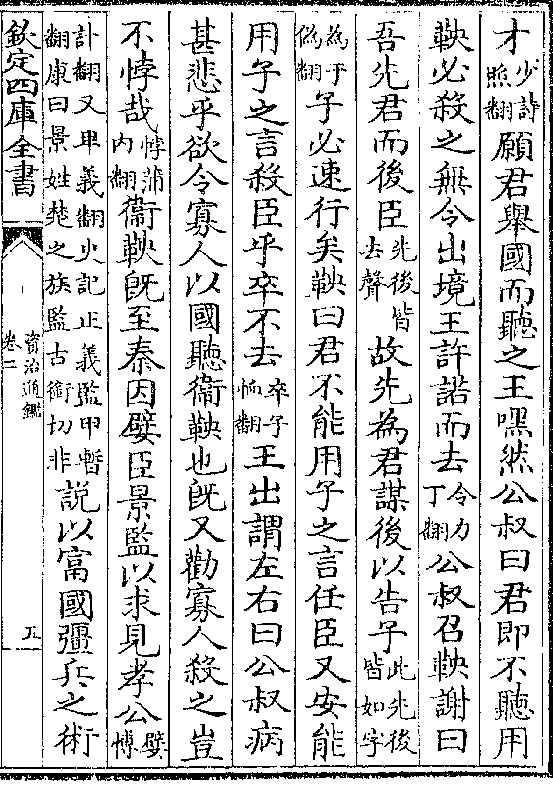 才少詩照翻願君舉國而聽之王嘿然公叔曰君即不聽用
鞅必殺之無令出境王許諾而去令力丁翻公叔召鞅謝曰
吾先君而後臣先後皆去聲故先為君謀後以告子此先後皆如字
為于偽翻子必速行矣鞅曰君不能用子之言任臣又安能
用子之言殺臣乎卒不去卒子恤翻王出謂左右曰公叔病
甚悲乎欲令寡人以國聽衞鞅也既又勸寡人殺之豈
不悖哉悖蒲內翻衞鞅既至秦因嬖臣景監以求見孝公嬖博
計翻又卑義翻史記正義監甲暫翻康曰景姓楚之族監古銜切非說以富國彊兵之術
欽定四庫全書
資治通鑑
卷二
五